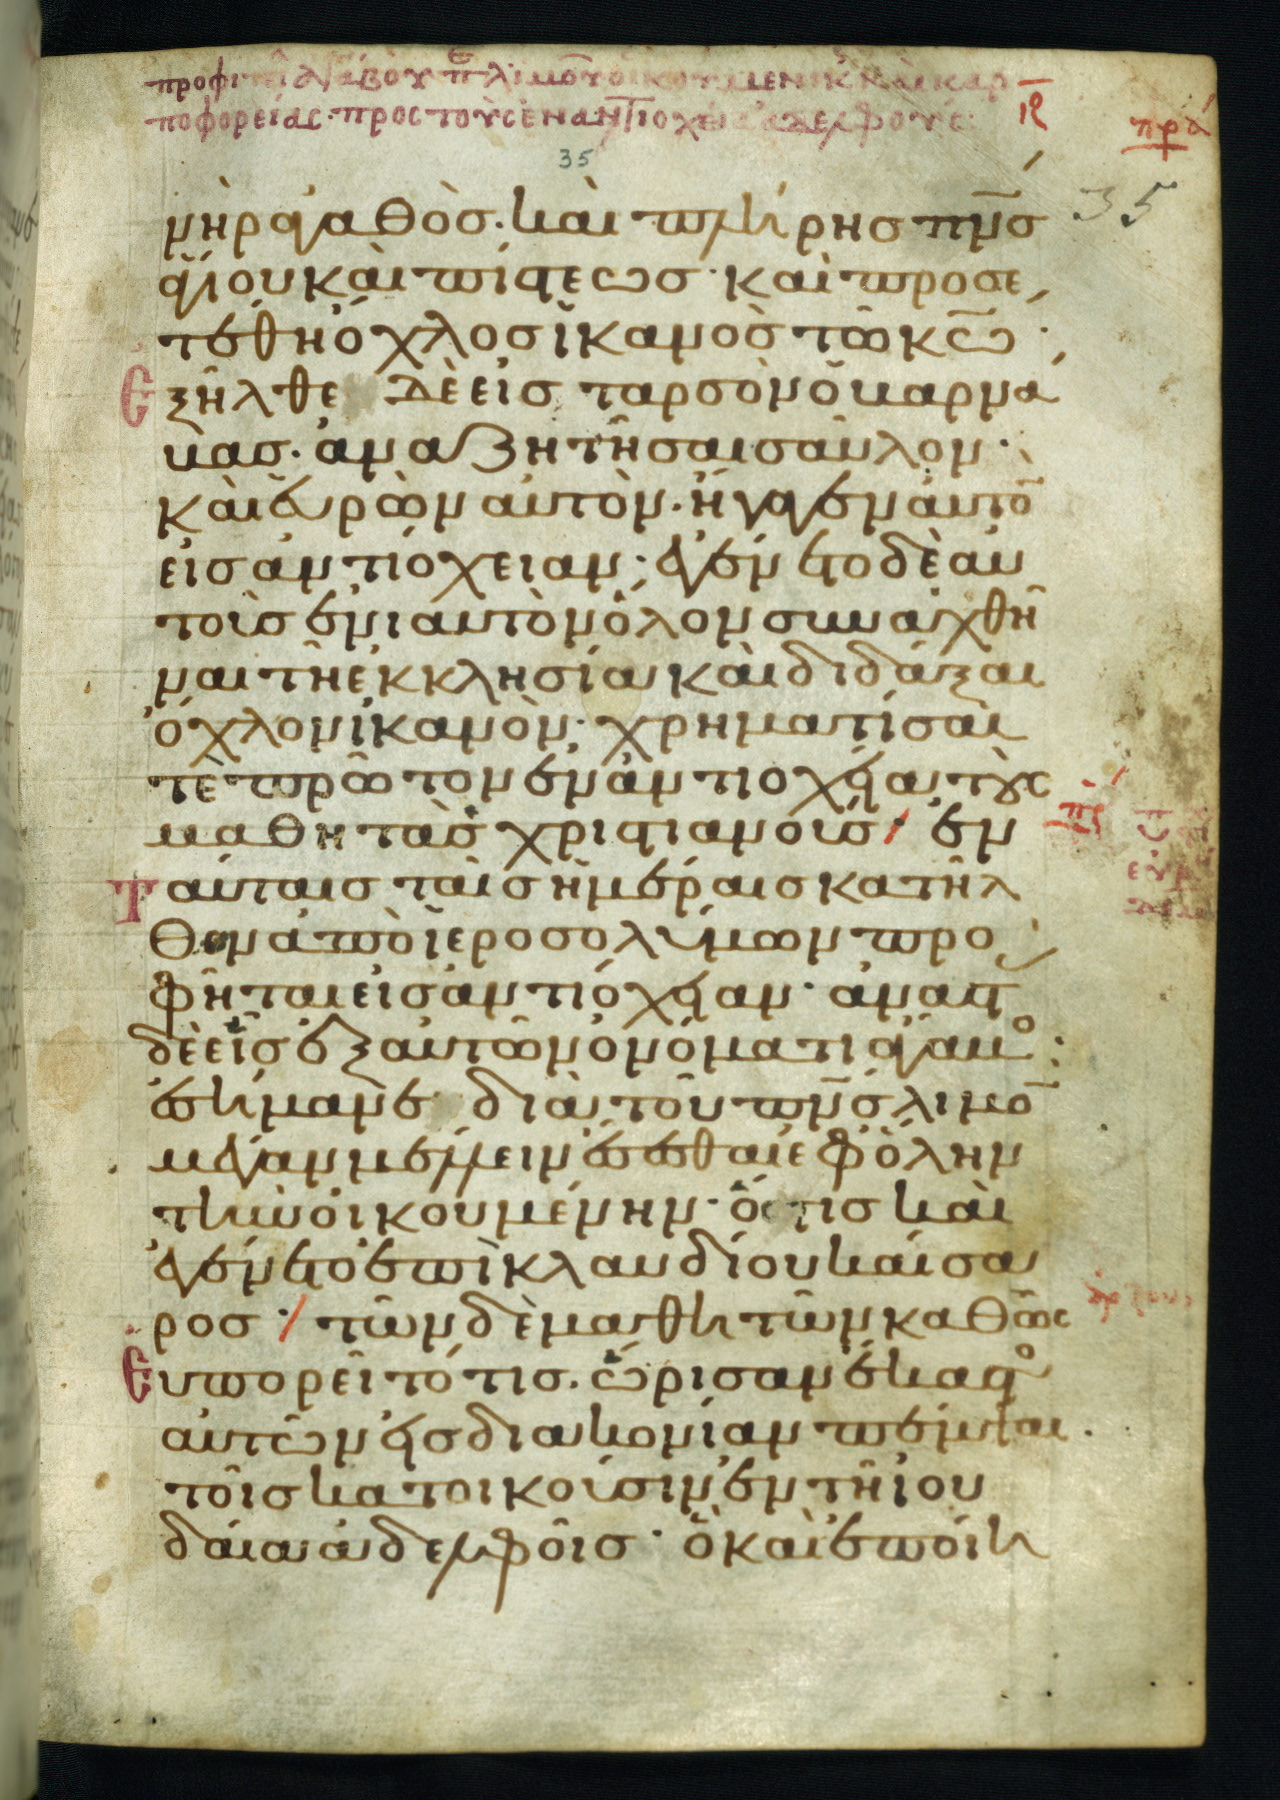 προφιτεία ἀγάβου π λιμοῦ οἰκουμενικ καὶ καρ
ποφορείας· πρὸς τοὺς ἐν ἀντιοχεία ἀδελφούς:
ιζ
πρα
35
35
νὴρ ἀγαθὸσ· καὶ πλήρησ πνσ
ἁγίου καὶ πίστεωσ· καὶ προσε
τέθη ὄχλοσ ἱκανὸσ τῶ κω·
Ἐξῆλθε δὲ εἰσ ταρσὸν ὁ βαρνά
βασ· ἀναζητῆσαι σαῦλον·
καὶ εὑρὼν αὐτὸν· ἤγαγεν αὐτὸ
εἰσ ἀντιόχειαν· ἐγένετο δὲ αὐ
τοῖσ ἐνιαυτὸν ὅλον συναχθῆ
ναι τῆ ἐκκλησία καὶ διδάξαι
ὄχλον ἱκανὸν· χρηματίσαι
τὲ πρῶτον ἐν ἀντιοχεία τοὺς
μαθητὰσ χριστιανούσ· ἐν
Ταύταισ ταῖσ ἡμέραισ κατῆλ
θον ἀπὸ ἱεροσολύμων προ
φῆται εἰσ ἀντιόχειαν· ἀναστ
δὲ εἷσ ἐξ αὐτῶν ὀνόματι ἄγαβο:
ἐσήμανε διὰ τοῦ πνσ λιμὸ
μέγαν μέλλειν ἔσεσθαι ἐφ ὅλην
τὴν οἰκουμένην· ὅστισ καὶ
ἐγένετο ἐπὶ κλαυδίου καίσα
ροσ· τῶν δὲ μαθητῶν καθὼς
Εὐπορεῖτό τισ· ὥρισαν ἕκαστο
αὐτῶν εἰσ διακονίαν πέμψαι
τοῖσ κατοικοῦσιν ἐν τῆ ἰου
δαία ἀδελφοῖσ· ὃ καὶ ἐποίη